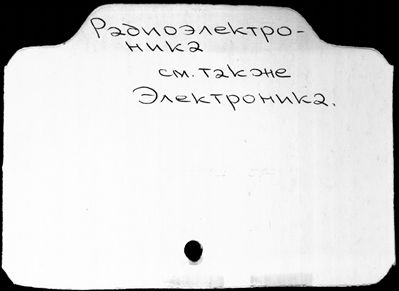 Радиоэлектро-
ника
см. также
Электроника.